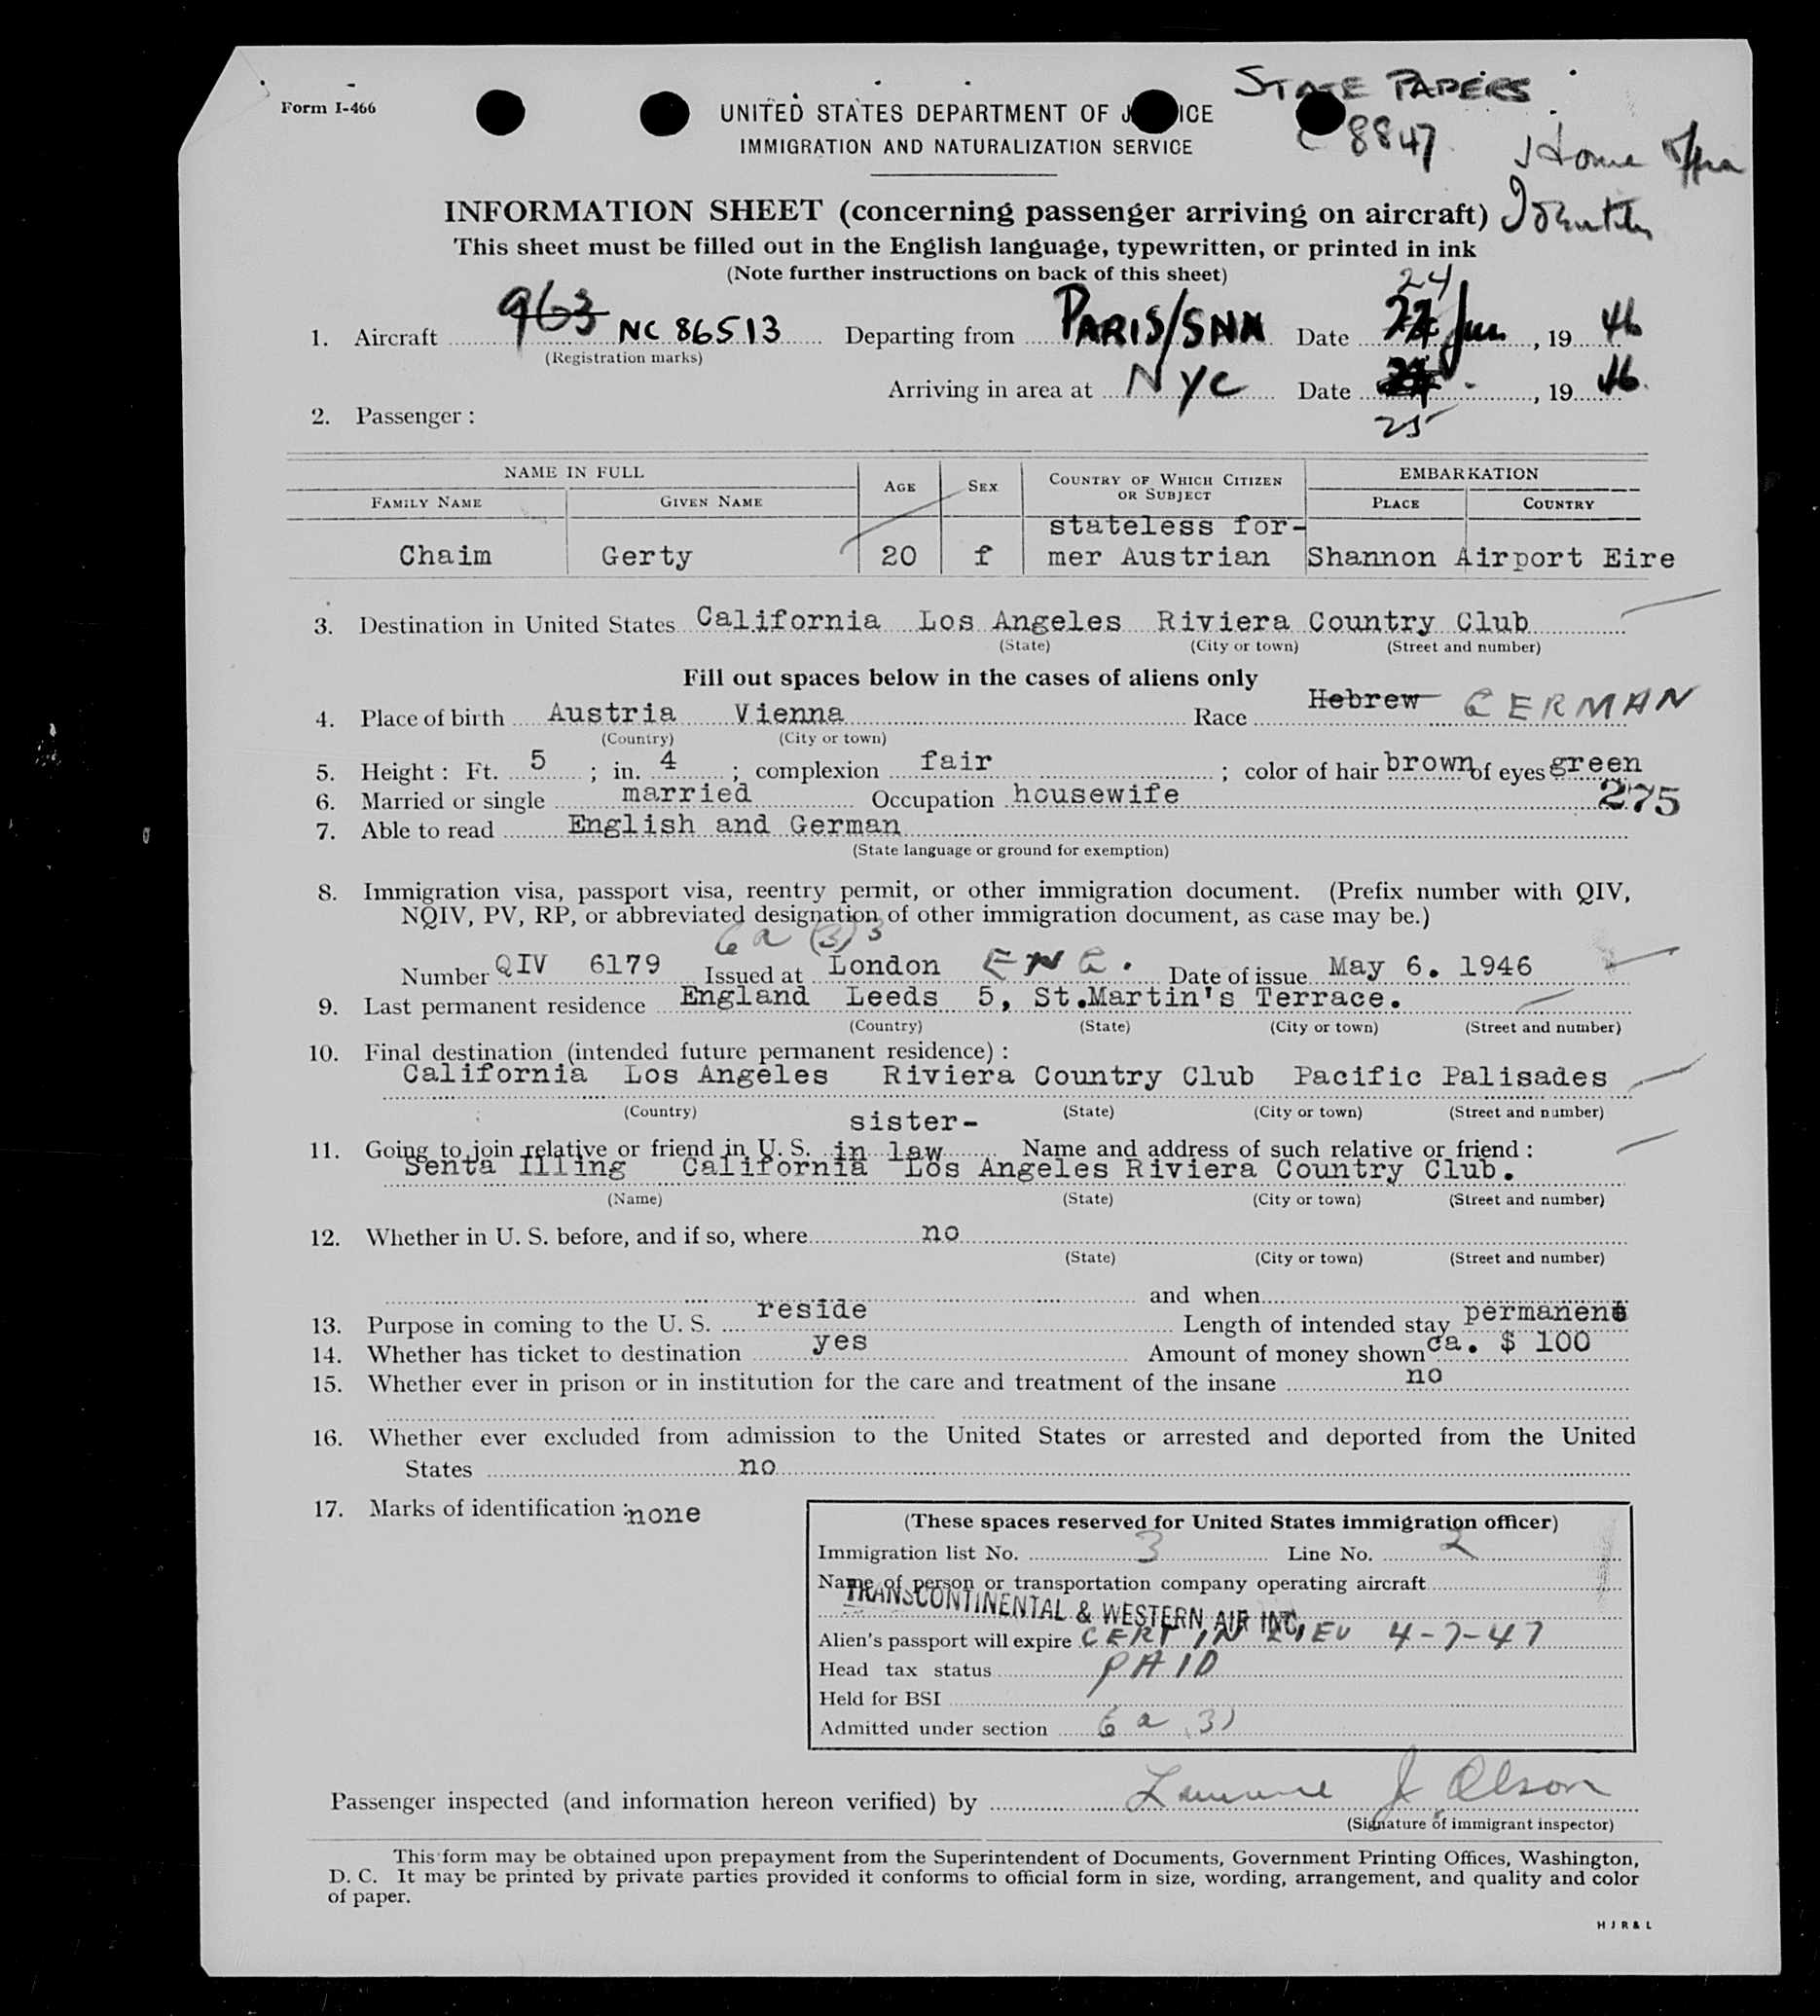 STATE PAPERS
Form I-466
UNITED STATES DEPARTMENT OF J ICE
8847
IMMIGRATION AND NATURALIZATION SERVICE
Home
INFORMATION SHEET (concerning passenger arriving on aircraft)
This sheet must be filled out in the English language, typewritten, or printed in ink
(Note further instructions on back of this sheet)
24
1. Aircraft 963 NC 86513 Departing from PARIS/SNN Date Jun , 19 46
(Registration marks)
Arriving in area at NYC Date , 19 46.
25
2. Passenger :
NAME IN FULL AGE SEX COUNTRY OF WHICH CITIZEN OR SUBJECT EMBARKATION
FAMILY NAME GIVEN NAME PLACE COUNTRY
stateless for-
Chaim Gerty 20 f mer Austrian Shannon Airport Eire
3. Destination in United States California Los Angeles Riviera Country Club
(State) (City or town) (Street and number)
Fill out spaces below in the cases of aliens only
4. Place of birth Austria Vienna Race Hebrew GERMAN
(Country) (City or town)
5. Height : Ft. 5 ; in. 4 ; complexion fair ; color of hair brown of eyes green
6. Married or single married Occupation housewife 275
7. Able to read English and German
(State language or ground for exemption)
8. Immigration visa, passport visa, reentry permit, or other immigration document. (Prefix number with QIV,
NQIV, PV, RP, or abbreviated designation of other immigration document, as case may be.)
6a (3) 3
Number QIV 6179 Issued at London ENG. Date of issue May 6. 1946
9. Last permanent residence England Leeds 5, St.Martin's Terrace.
(Country) (State) (City or town) (Street and number)
10. Final destination (intended future permanent residence) :
California Los Angeles Riviera Country Club Pacific Palisades
(Country) (State) (City or town) (Street and number)
sister-
11. Going to join relative or friend in U. S. in law Name and address of such relative or friend :
Senta Illing California Los Angeles Riviera Country Club.
(Name) (State) (City or town) (Street and number)
12. Whether in U. S. before, and if so, where no
(State) (City or town) (Street and number)
and when
13. Purpose in coming to the U. S. reside Length of intended stay permanent
14. Whether has ticket to destination yes Amount of money shown ca. $ 100
15. Whether ever in prison or in institution for the care and treatment of the insane no
16. Whether ever excluded from admission to the United States or arrested and deported from the United
States no
17. Marks of identification : none
(These spaces reserved for United States immigration officer)
Immigration list No. 3 Line No. 2
Name of person or transportation company operating aircraft
TRANSCONTINENTAL & WESTERN AIR INC.
Alien's passport will expire CERT IN LIEU 4-7-47
Head tax status PAID
Held for BSI
Admitted under section 6 a 3)
Passenger inspected (and information hereon verified) by Lawrence J Olson
(Signature of immigrant inspector)
This form may be obtained upon prepayment from the Superintendent of Documents, Government Printing Offices, Washington,
D. C. It may be printed by private parties provided it conforms to official form in size, wording, arrangement, and quality and color
of paper.
H J R & L